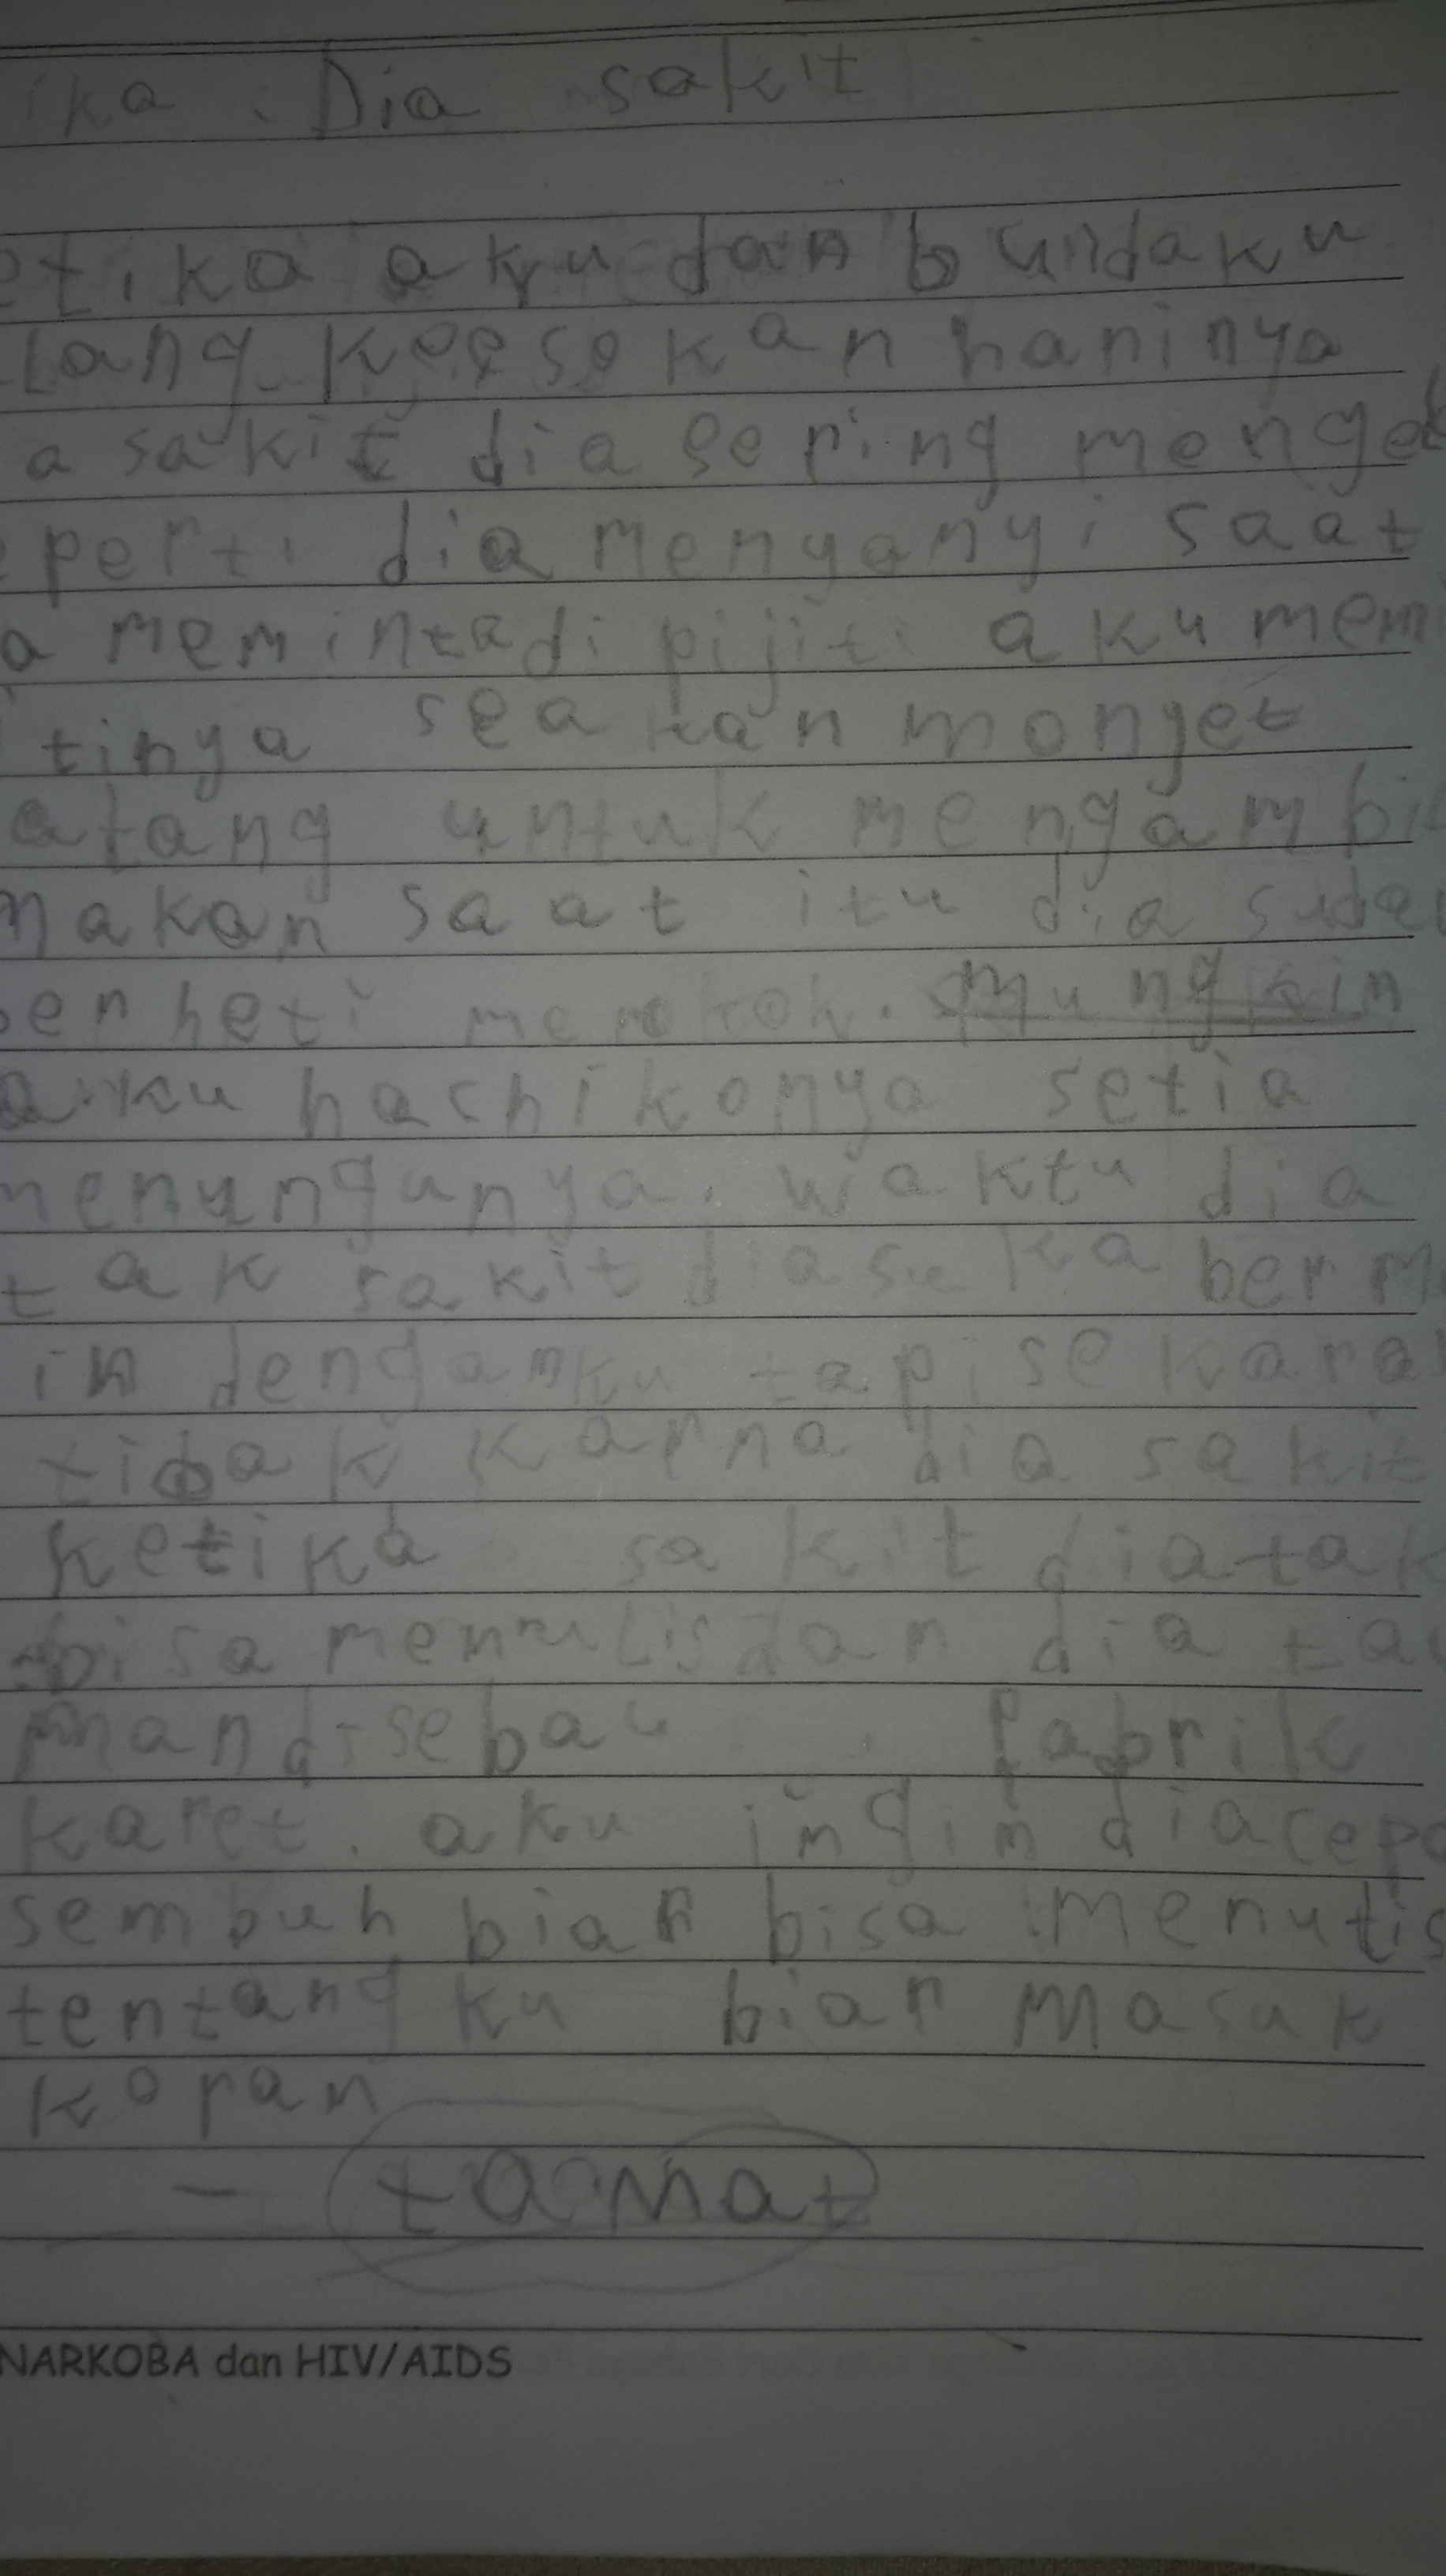 ika Dia sakit
etika aku dan bundaku
lang keesokan harinya
a sakit dia sering menge
perti dia menyanyi saat
a memintadi pijiti aku mem
tinya seakan monyet
atang untuk mengambil
makan saat itu dia suda
berheti merokok. mungkin
aku hachikonya setia
menungunya. waktu dia
tak sakit dia suka berm
in denganku tapi sekara
tidak karna dia sakit
ketika sakit dia tak
bisa menulis dan dia ta
mandi sebau pabrik
karet. aku ingin dia cepa
sembuh biar bisa menulis
tentangku biar masuk
koran
- tamat
NARKOBA dan HIV/AIDS